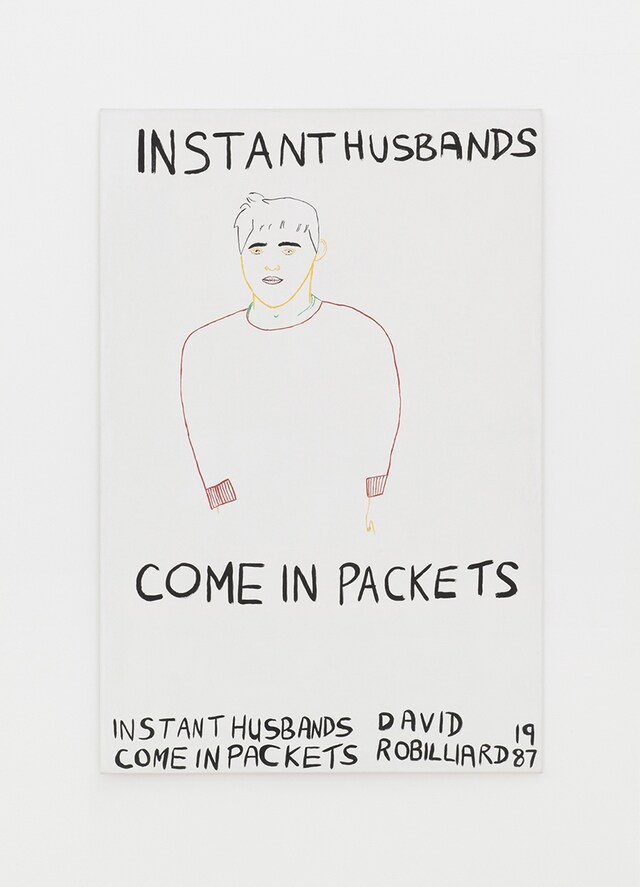 INSTANT HUSBANDS
COME IN PACKETS
INSTANT HUSBANDS DAVID 19
COME IN PACKETS ROBILLIARD 87